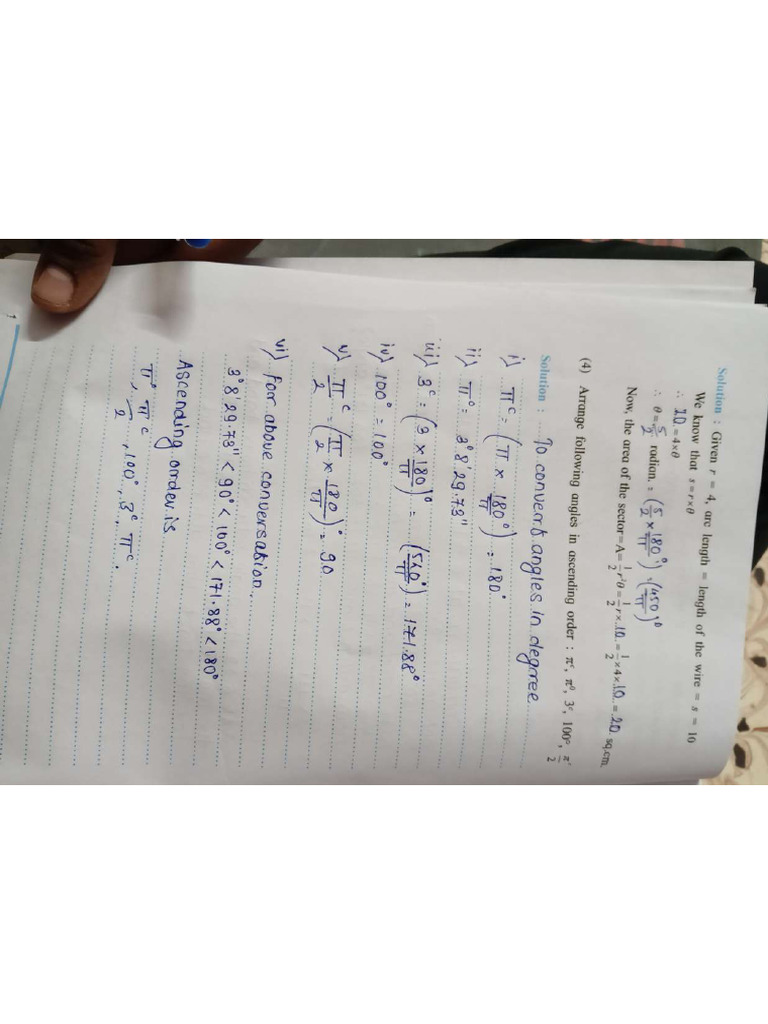 Solution : Given r = 4, arc length = length of the wire = s = 10
We know that s = r × θ
∴ 10 = 4 × θ
∴ θ = 5/2 radian. = (5/2 × 180°/π) = (450/π)°
Now, the area of the sector = A = 1/2 r²θ = 1/2 r × 10 = 1/2 × 4 × 10 = 20 sq.cm.
(4) Arrange following angles in ascending order : πᶜ, π⁰, 3ᶜ, 100°, πᶜ/2
Solution : To convert angles in degree
i) πᶜ = (π × 180°/π) = 180°
ii) π° = 3°8'29.73"
iii) 3ᶜ = (3 × 180/π)° = (540°/π) = 171.88°
iv) 100° = 100°
v) πᶜ/2 = (π/2 × 180/π)° = 90
vi) for above conversation.
3°8'29.73" < 90° < 100° < 171.88° < 180°
Ascending order is
π°, πᶜ/2, 100°, 3ᶜ, πᶜ.